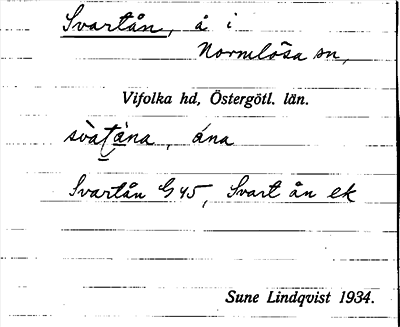 Svartån, å i
Normlösa sn,
Vifolka hd, Östergötl. län.
svàt̲àna, ána
Svartån G 45, Svart ån ek
Sune Lindqvist 1934.